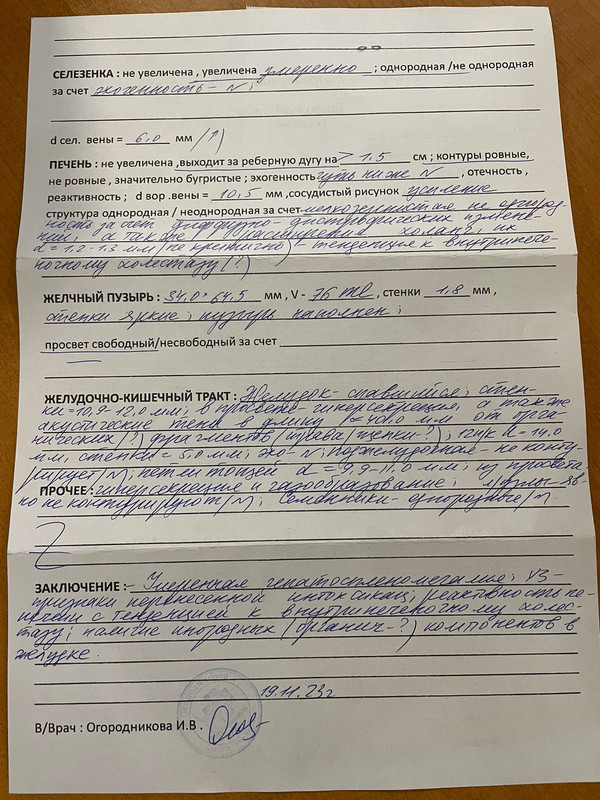 СЕЛЕЗЕНКА : не увеличена , увеличена умеренно ; однородная /не однородная
за счет эхогенность – N ;
d сел. вены = 6,0 мм /↑)
ПЕЧЕНЬ : не увеличена ,выходит за реберную дугу на > 1,5 см ; контуры ровные,
не ровные , значительно бугристые ; эхогенность чуть ниже N , отечность ,
реактивность ; d вор .вены = 10,5 мм ,сосудистый рисунок усиление
структура однородная / неоднородная за счет мелкозернистая не однород-
ность за счет диффузно- измене-
ний; а также расширения холанг; их
d = 1.2-1.3 мм (не критично) – тенденция к внутрипече-
ночному холестазу (?)
ЖЕЛЧНЫЙ ПУЗЫРЬ : 34,0 × 64,5 мм , V - 76 ml , стенки 1,8 мм ,
стенки яркие; пузырь наполнен ;
просвет свободный/несвободный за счет
ЖЕЛУДОЧНО-КИШЕЧНЫЙ ТРАКТ : Желудок - спавшийся; стен-
ки =10,9-12,0 мм; в просвете- гиперсекреция, а также
акустические тени в длину 40,0 мм от орга-
нических (?) фрагментов (трава/щепки-?) ; 12п/к d = 14,0
мм, стенки = 5,0 мм; эхо- N; поджелудочная - не конту-
рирует /N); петли тощей d = 9,9-11,0 мм; из просвета
ПРОЧЕЕ : гиперсекреция и газообразование ; л/узлы- яв-
но не контурируют /N); Семенники- однородные /N.
ЗАКЛЮЧЕНИЕ :- Умеренная гепатоспленомегалия; УЗ-
признаки перенесенной интоксикац; реактивность пе-
печени с тенденцией к внутрипеченочному холес-
тазу; наличие инородных (органич-?) компонентов в
желудке.
19.11.23г
В/Врач : Огородникова И.В .